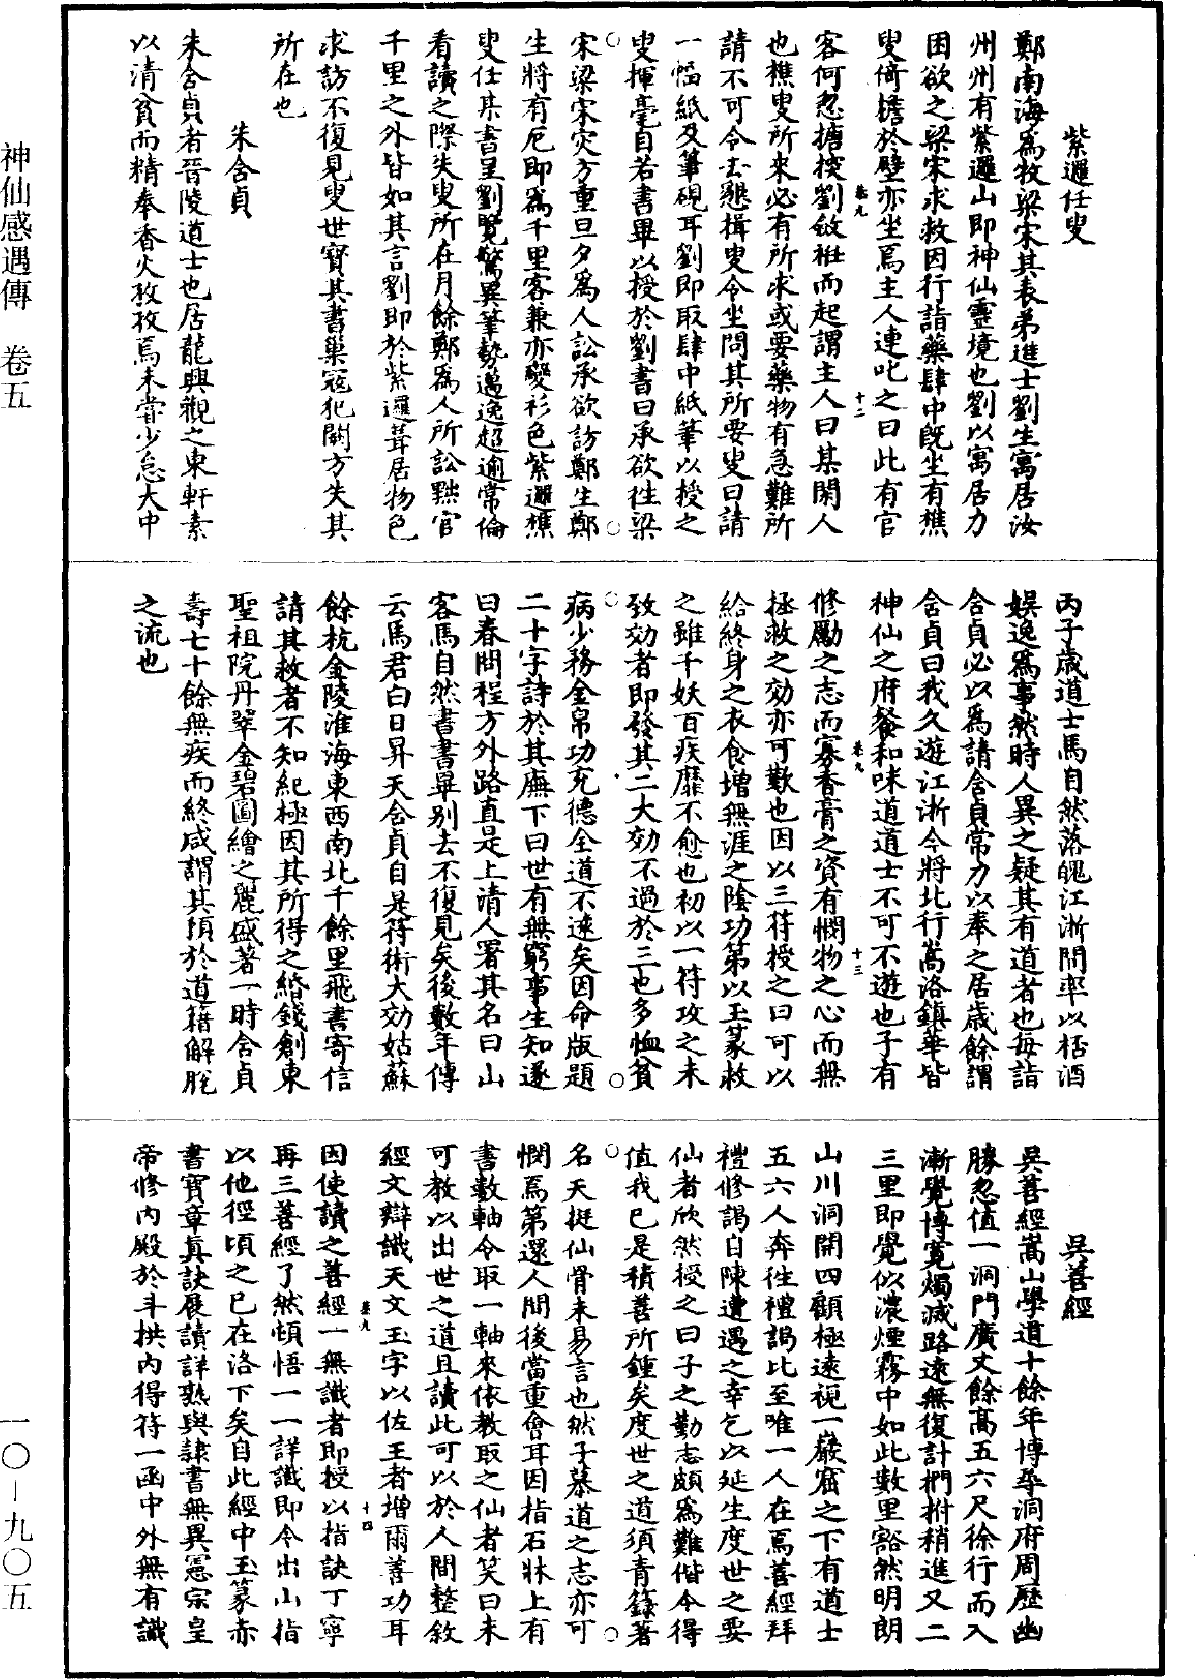 神仙感遇傳 卷五
一〇—九〇五
紫邏任叟
鄭南海為牧梁宋其表弟進士劉生寓居汝
州州有紫邏山即神仙靈境也劉以寓居力
困欲之梁宋求救因行詣藥肆中既坐有樵
叟倚擔於壁亦坐焉主人連叱之曰此有官
卷九
十二
客何忽搪揬劉斂袵而起謂主人曰某閑人
也樵叟所來必有所求或要藥物有急難所
請不可令去懇揖叟令坐問其所要叟曰請
一幅紙及筆硯耳劉即取肆中紙筆以授之
叟揮毫自若書畢以授於劉書曰承欲往梁
宋梁宋灾方重旦夕為人訟承欲訪鄭生鄭
生將有厄即為千里客兼亦變衫色紫邏樵
叟任某書呈劉覽驚異筆勢邁逸超逾常倫
看讀之際失叟所在月餘鄭為人所訟黜官
千里之外皆如其言劉即於紫邏葺居物色
求訪不復見叟世寶其書巢寇犯闕方失其
所在也
朱含貞
朱含貞者晉陵道士也居龍興觀之東軒素
以清貧而精奉香火孜孜焉未甞少怠大中
丙子歲道士馬自然落魄江浙間率以栝酒
娱逸為事然時人異之疑其有道者也每詣
含貞必以為請含貞常力以奉之居歲餘謂
含貞曰我久遊江浙今將北行嵩洛鎮華皆
神仙之府餐和味道道士不可不遊也子有
卷九
十三
修勵之志而寡香膏之資有憫物之心而無
拯救之効亦可歎也因以三符授之曰可以
給終身之衣食增無涯之陰功第以玉篆救
之雖千妖百疾靡不愈也初以一符攻之未
致効者即發其二大効不過於三也多恤貧
病少務金帛功充德全道不逺矣因命版題
二十字詩於其廡下曰世有無窮事生知遂
曰春問程方外路直是上清人署其名曰山
客馬自然書書畢別去不復見矣後數年傳
云馬君白日昇天含貞自是符術大効姑蘇
餘杭金陵淮海東西南北千餘里飛書寄信
請其救者不知紀極因其所得之緡錢創東
聖祖院丹翠金碧圖繪之麗盛著一時含貞
壽七十餘無疾而終咸謂其預於道籍解脫
之流也
吳善經
吳善經嵩山學道十餘年博尋洞府周歷幽
勝忽值一洞門廣丈餘高五六尺徐行而入
漸覺博寬燭滅路遠無復計捫拊稍進又二
三里即覺似濃煙霧中如此數里豁然明朗
山川洞開四顧極遠視一巖窟之下有道士
五六人奔往禮謁比至唯一人在焉善經拜
禮修謁自陳遭遇之幸乞以延生度世之要
仙者欣然授之曰子之勤志頗為難偕今得
值我已是積善所鍾矣度世之道須青籙著
名天挺仙骨未易言也然子慕道之志亦可
憫焉第還人間後當重會耳因指石牀上有
書數軸令取一軸來依教取之仙者笑曰未
可教以出世之道且讀此可以於人間整敘
經文辯識天文玉字以佐王者增爾善功耳
卷九
十四
因使讀之善經一無識者即授以指訣丁寧
再三善經了然頓悟一一詳識即令出山指
以他徑頃之已在洛下矣自此經中玉篆赤
書寶章真訣展讀詳熟與隷書無異憲宗皇
帝修內殿於斗拱內得符一函中外無有識